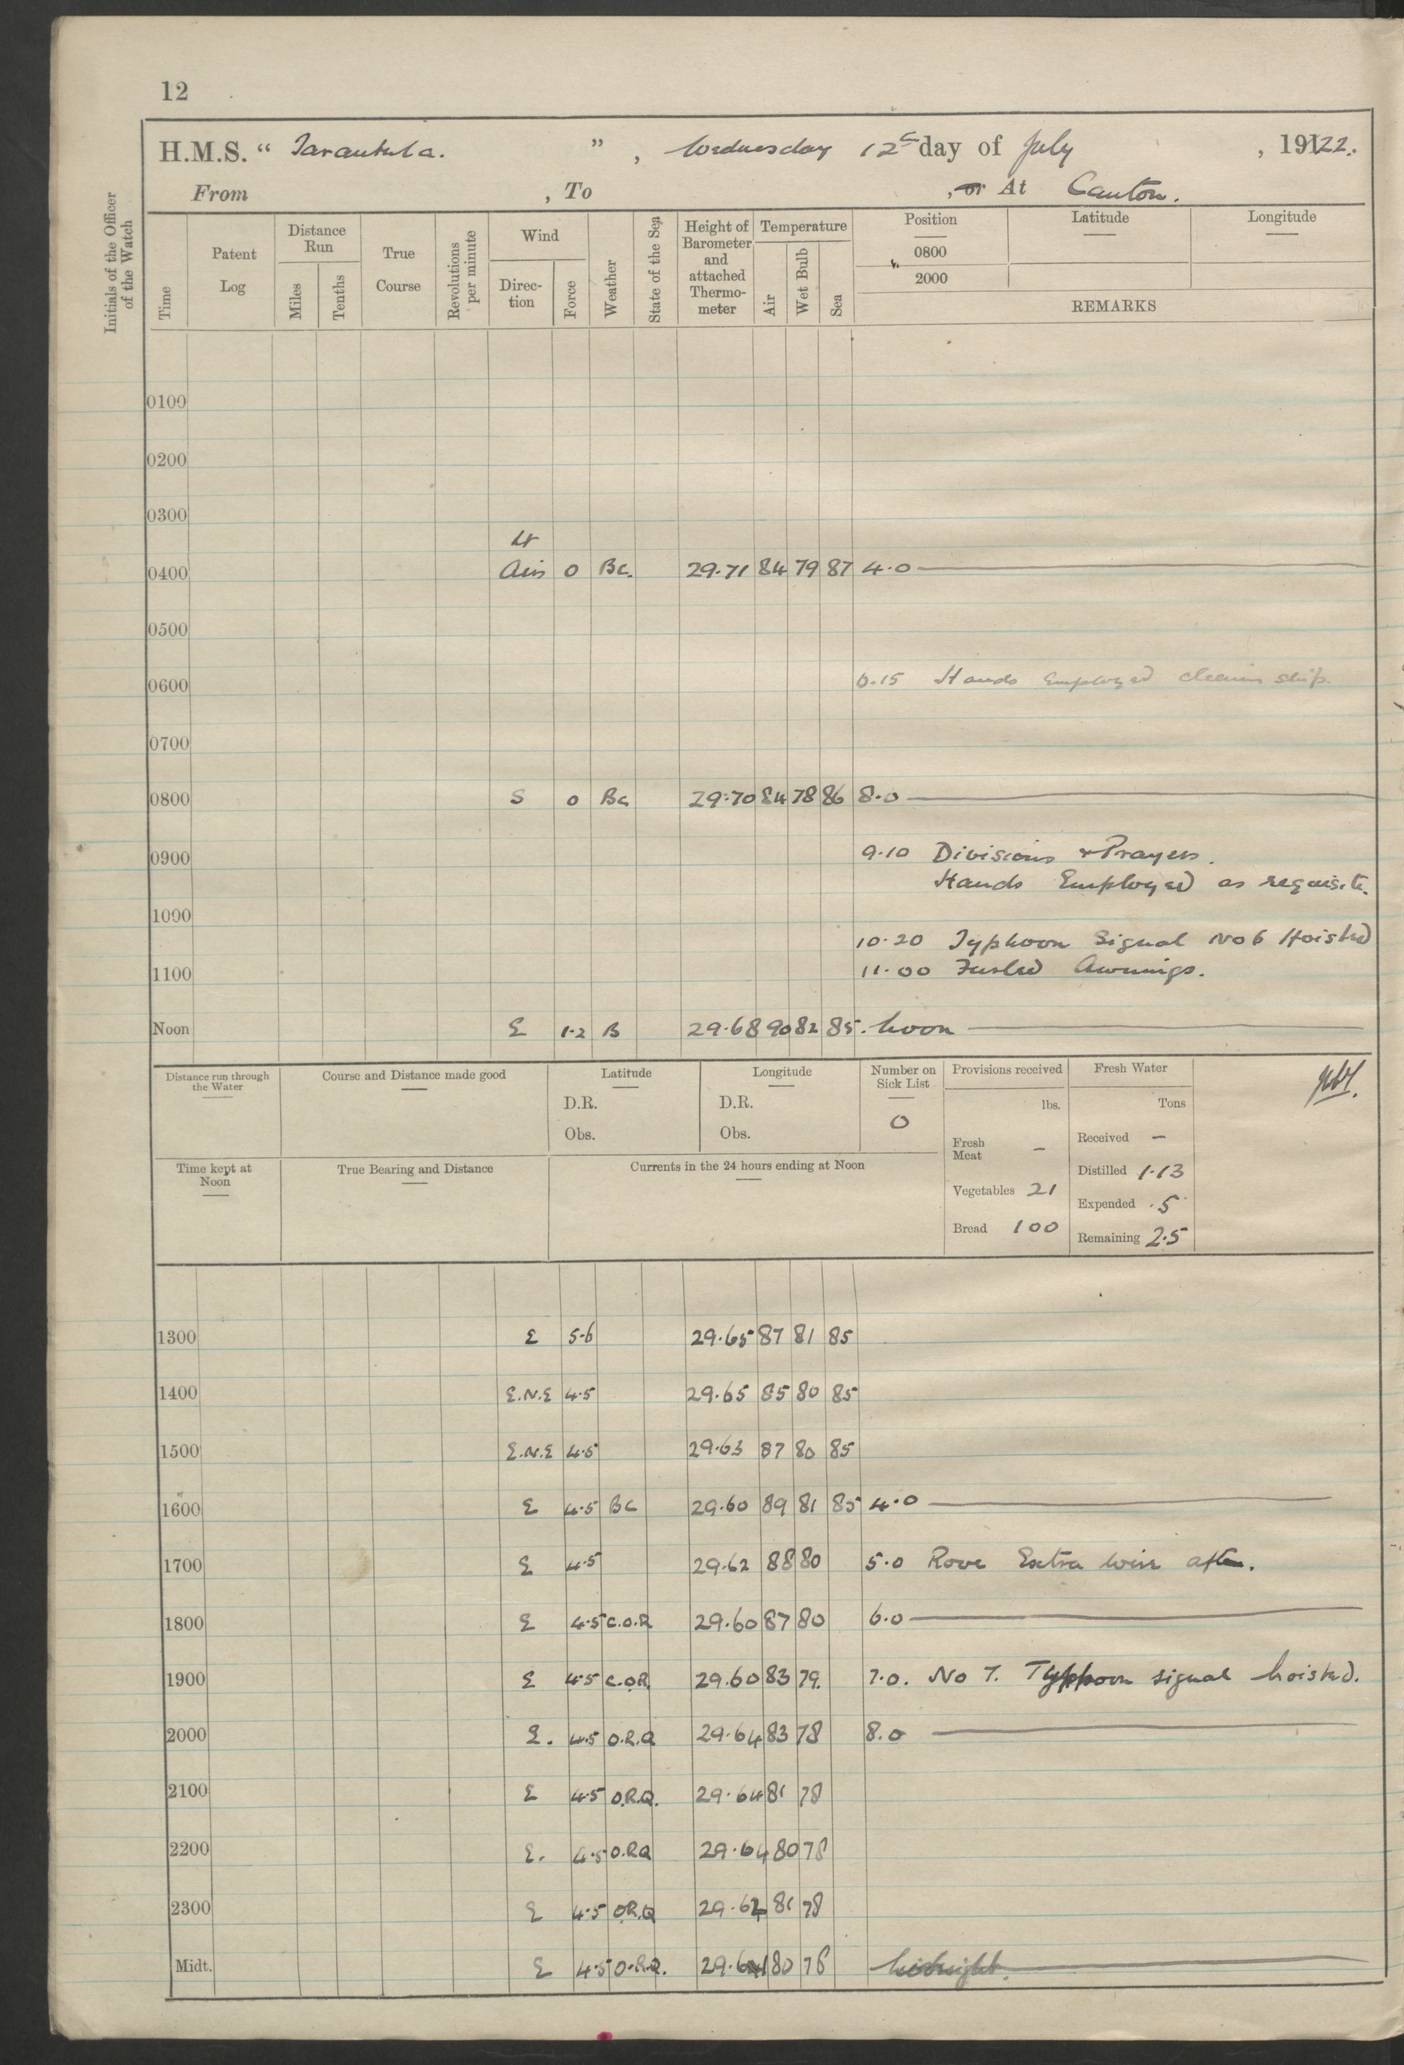 12
H.M.S. “ Tarantula. ” , Wednesday 12th day of July , 1922.
From , To , or At Canton.
Initials of the Officer of the Watch
Time
Patent Log
Distance Run
Miles
Tenths
True Course
Revolutions per minute
Wind
Direc-tion
Force
Weather
State of the Sea
Height of Barometer and attached Thermo-meter
Temperature
Air
Wet Bulb
Sea
Position Latitude Longitude
0800
2000
REMARKS
0100
0200
0300
Lt
0400 Airs 0 Bc. 29.71 84 79 87 4.0
0500
0600 6.15 Hands Employed cleaning ship.
0700
0800 S 0 Bc 29.70 84 78 86 8.0
0900 9.10 Divisions & Prayers.
Hands Employed as requisite.
1000
10.20 Typhoon Signal No 6 Hoisted
1100 11.00 Furled Awnings.
Noon E 1-2 B 29.68 90 82 85. Noon
Distance run through the Water
Course and Distance made good
Latitude
D.R.
Obs.
Longitude
D.R.
Obs.
Number on Sick List
0
Provisions received
lbs.
Fresh Meat -
Vegetables 21
Bread 100
Fresh Water
Tons
Received -
Distilled 1.13
Expended .5
Remaining 2.5
Time kept at Noon
True Bearing and Distance
Currents in the 24 hours ending at Noon
1300 E 5-6 29.65 87 81 85
1400 E.N.E 4.5 29.65 85 80 85
1500 E.N.E 4.5 29.63 87 80 85
1600 E 4.5 BC 29.60 89 81 85 4.0
1700 E 4.5 29.62 88 80 5.0 Rove Extra wire after.
1800 E 4.5 C.O.R 29.60 87 80 6.0
1900 E 4.5 C.O.R. 29.60 83 79. 7.0. No 7. Typhoon signal hoisted.
2000 E. 4.5 O.R.Q 29.64 83 78 8.0
2100 E 4.5 O.R.Q. 29.64 81 78
2200 E. 4.5 O.R.Q 29.64 80 78
2300 E 4.5 O.R.Q 29.62 81 78
Midt. E 4.5 O.R.Q. 80 78 Midnight.